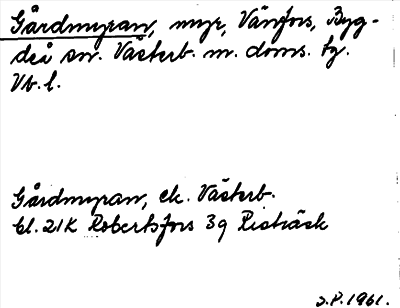 Gårdmyran, myr, Vänfors, Byg-
deå sn. Västerb. m. doms. tg.
Vb. l.
Gårdmyran, ek. Västerb.
bl. 21K Robertsfors 3g Pisträsk
S.P. 1961.